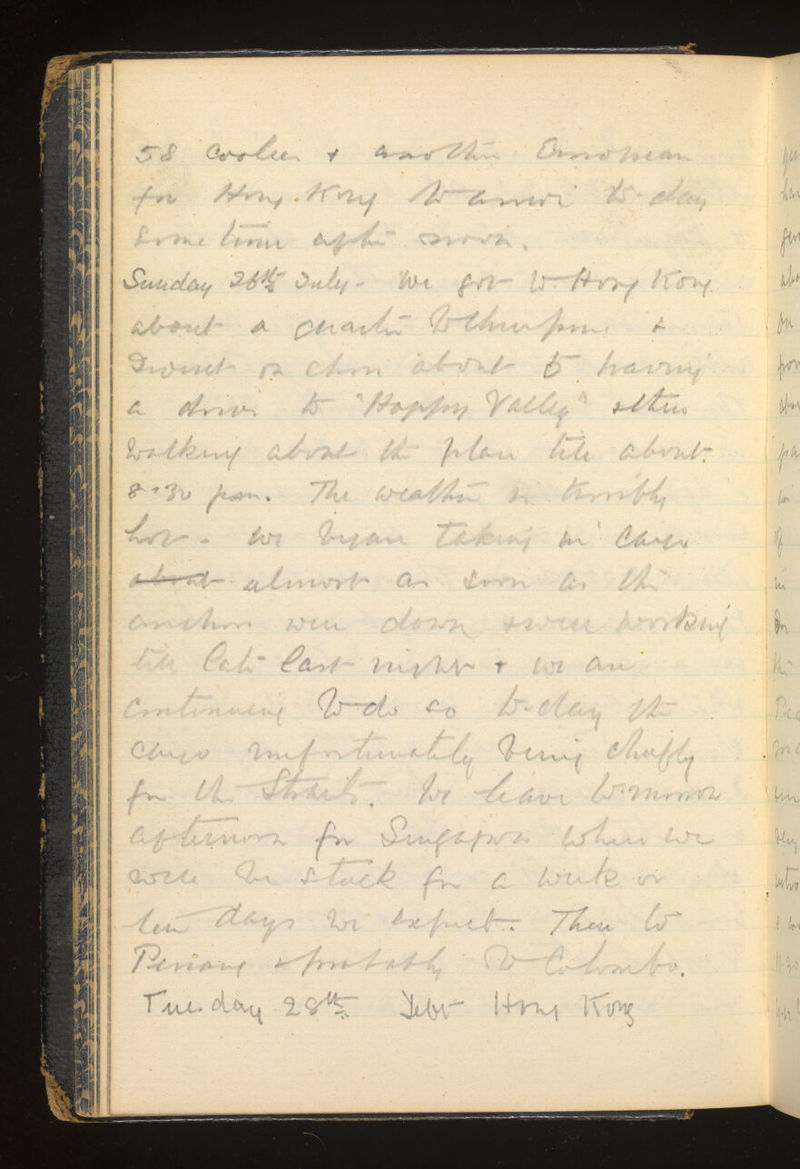 58 coolies & another European
for Hong Kong to arrive to-day
some time after noon.
Sunday 26th July - We got to Hong Kong
about a quarter to three pm &
I went on shore about 5 having
a drive to "Happy Valley" & then
walking about the place till about
8.30 pm. The weather is terribly
hot - we began taking in cargo
about almost as soon as the
anchor was down & were working
till late last night & we are
continuing to do so to-day the
cargo unfortunately being chiefly
for the Straits. We leave to-morrow
afternoon for Singapore where we
will be stuck for a week or
ten days we expect. Then to
Penang & probably to Colombo.
Tuesday 28th. Left Hong Kong